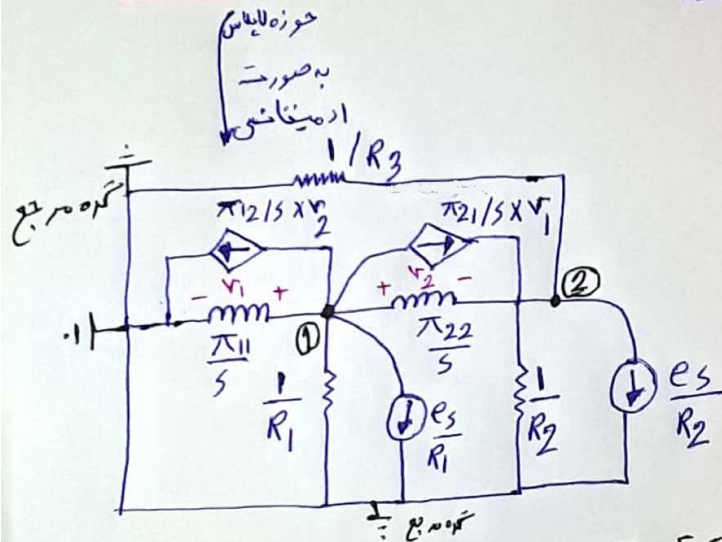 حوزه لاپلاس
به صورت
ادمیتانسی
1/R3
گره مرجع
π12/s × v2
π21/s × v1
- v1 +
+ v2 -
①
②
π11/s
π22/s
1/R1
es/R1
1/R2
es/R2
گره مرجع